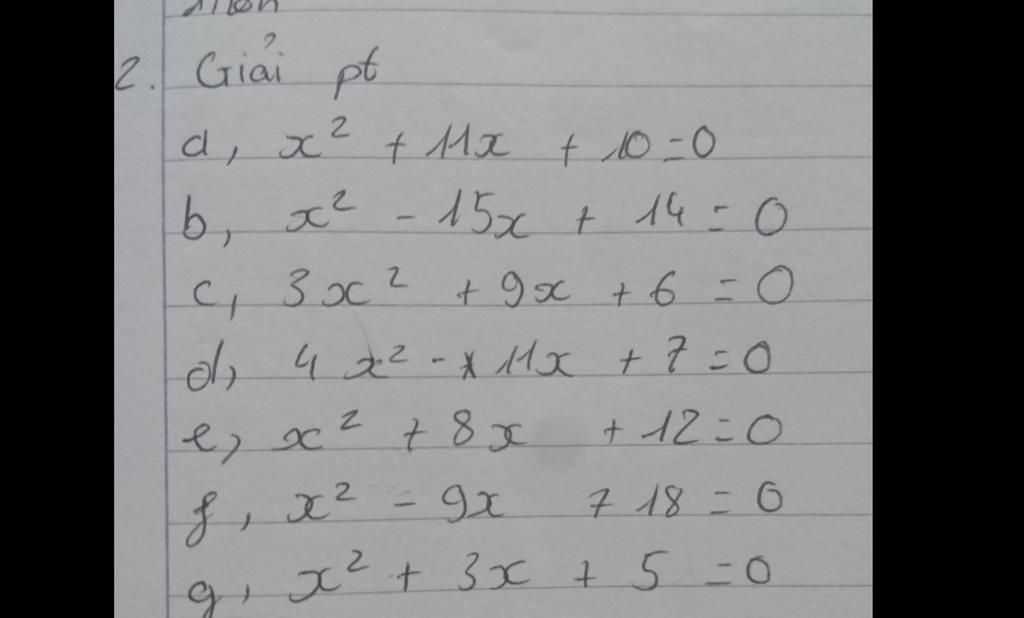 2. Giải pt
a, x² + 11x + 10 = 0
b, x² - 15x + 14 = 0
c, 3x² + 9x + 6 = 0
d, 4x² - 11x + 7 = 0
e, x² + 8x + 12 = 0
f, x² - 9x + 18 = 0
g, x² + 3x + 5 = 0